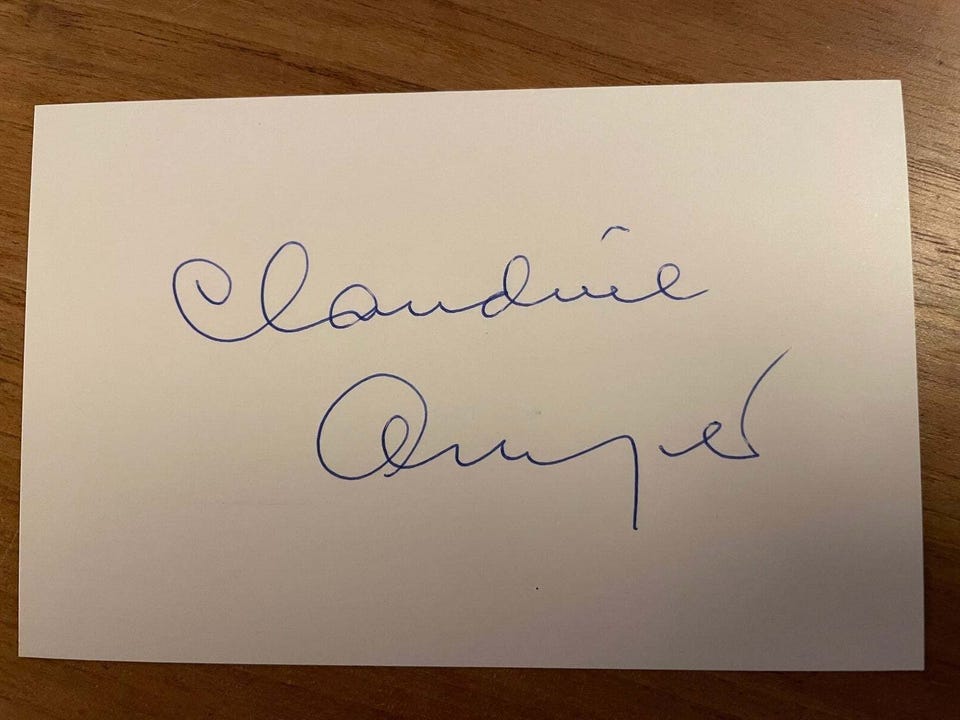 Claudine
Auger